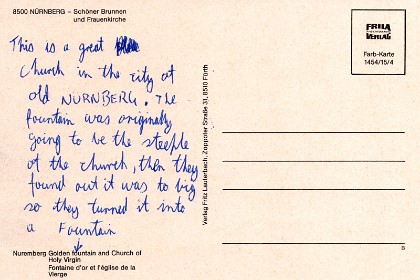 8500 NÜRNBERG – Schöner Brunnen
und Frauenkirche
This is a great
church in the city of
old NÜRNBERG. The
fountain was originally
going to be the steeple
of the church, then they
found out it was to big
so they turned it into
a Fountain
Nuremberg Golden fountain and Church of
Holy Virgin
Fontaine d'or et l'église de la
Vierge
Verlag Fritz Lauterbach, Zoppoter Straße 31, 8510 Fürth
FRILA
VERLAG
Farb-Karte
1454/15/4
B